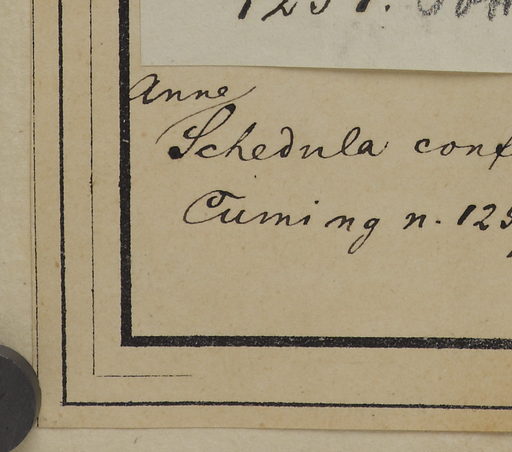 1251.
Anne
Schedula conf
Cuming n. 125